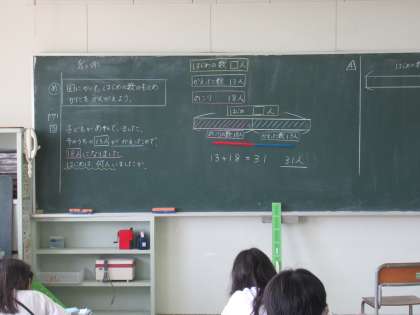 図にかいて、はじめの数のもとめ
かたをかんがえよう。
子どもがあそんでいました。
13人がかえったので、
18人になりました。
はじめは、何人いましたか。
はじめの数 □人
かえった数 13人
のこり 18人
はじめ □人
のこりの数18人 かえった数13人
13+18=31
31人
はじめの数